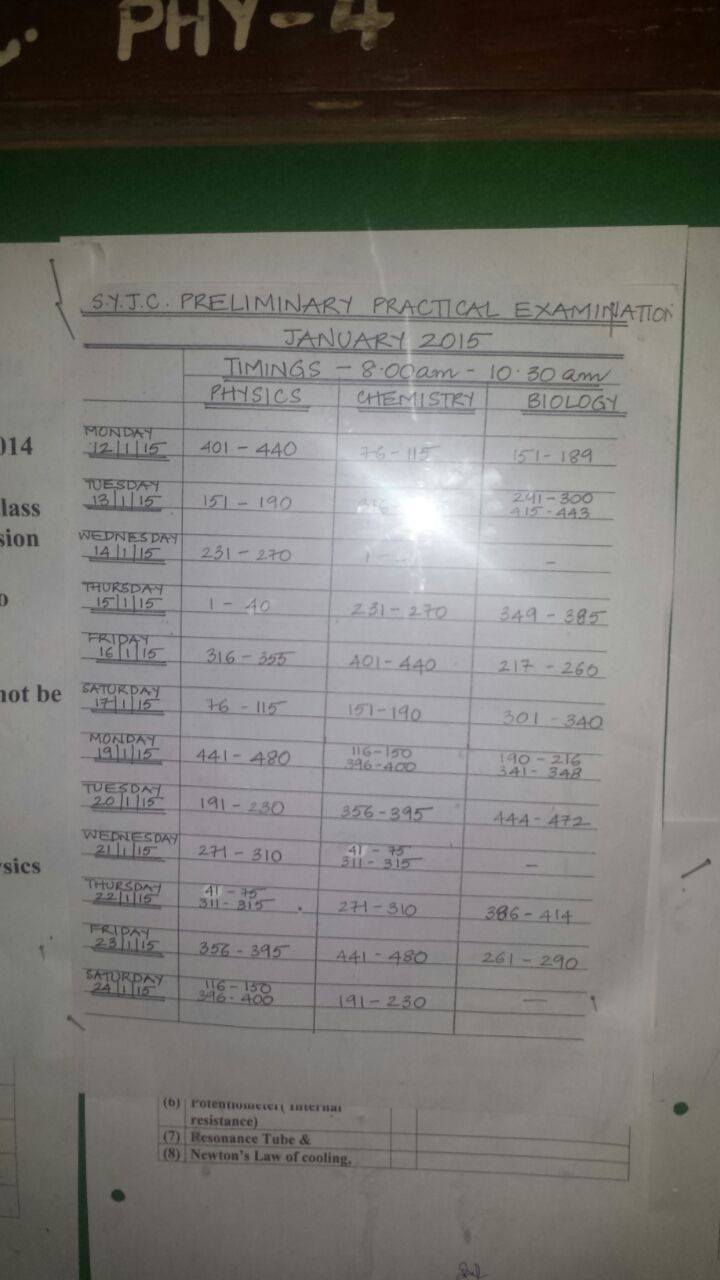 PHY-4
S.Y.J.C. PRELIMINARY PRACTICAL EXAMINATION
JANUARY 2015
TIMINGS - 8.00am - 10.30 am
PHYSICS CHEMISTRY BIOLOGY
MONDAY
12/1/15 401 - 440 76 - 115 151 - 189
TUESDAY 241 - 300
13/1/15 151 - 190 316 415 - 443
WEDNESDAY
14/1/15 231 - 270 1 - -
THURSDAY
15/1/15 1 - 40 231 - 270 349 - 385
FRIDAY
16/1/15 316 - 355 401 - 440 217 - 260
SATURDAY
17/1/15 76 - 115 151 - 190 301 - 340
MONDAY 116 - 150 190 - 216
19/1/15 441 - 480 396 - 400 341 - 348
TUESDAY
20/1/15 191 - 230 356 - 395 444 - 472
WEDNESDAY 41 - 75
21/1/15 271 - 310 311 - 315 -
THURSDAY 41 - 75
22/1/15 311 - 315 271 - 310 386 - 414
FRIDAY
23/1/15 356 - 395 441 - 480 261 - 290
SATURDAY 116 - 150
24/1/15 396 - 400 191 - 230 -
014
lass
sion
not be
sics
(6) Potentiometer( Internal
resistance)
(7) Resonance Tube &
(8) Newton's Law of cooling,